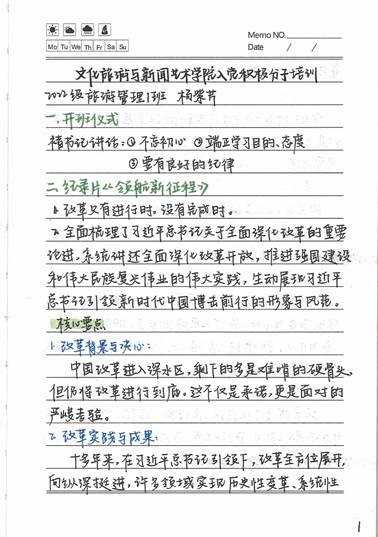 Memo NO.
Mo Tu We Th Fr Sa Su
Date / /
文化旅游与新闻艺术学院入党积极分子培训
2022级旅游管理1班 杨翠芹
一、开班仪式
褚书记讲话：①不忘初心 ②端正学习目的、态度
③要有良好的纪律
二、纪录片《领航新征程》
1、改革只有进行时，没有完成时。
2、全面梳理了习近平总书记关于全面深化改革的重要
论述，系统讲述全面深化改革开放，推进强国建设
和伟大民族复兴伟业的伟大实践，生动展现习近平
总书记引领新时代中国搏击前行的形象与风范。
核心要点
1、改革背景与决心：
中国改革进入深水区，剩下的多是难啃的硬骨头，
但仍将改革进行到底。这不仅是承诺，更是面对的
严峻考验。
2、改革实践与成果：
十多年来，在习近平总书记引领下，改革全方位展开，
向纵深挺进，许多领域实现历史性变革、系统性
1